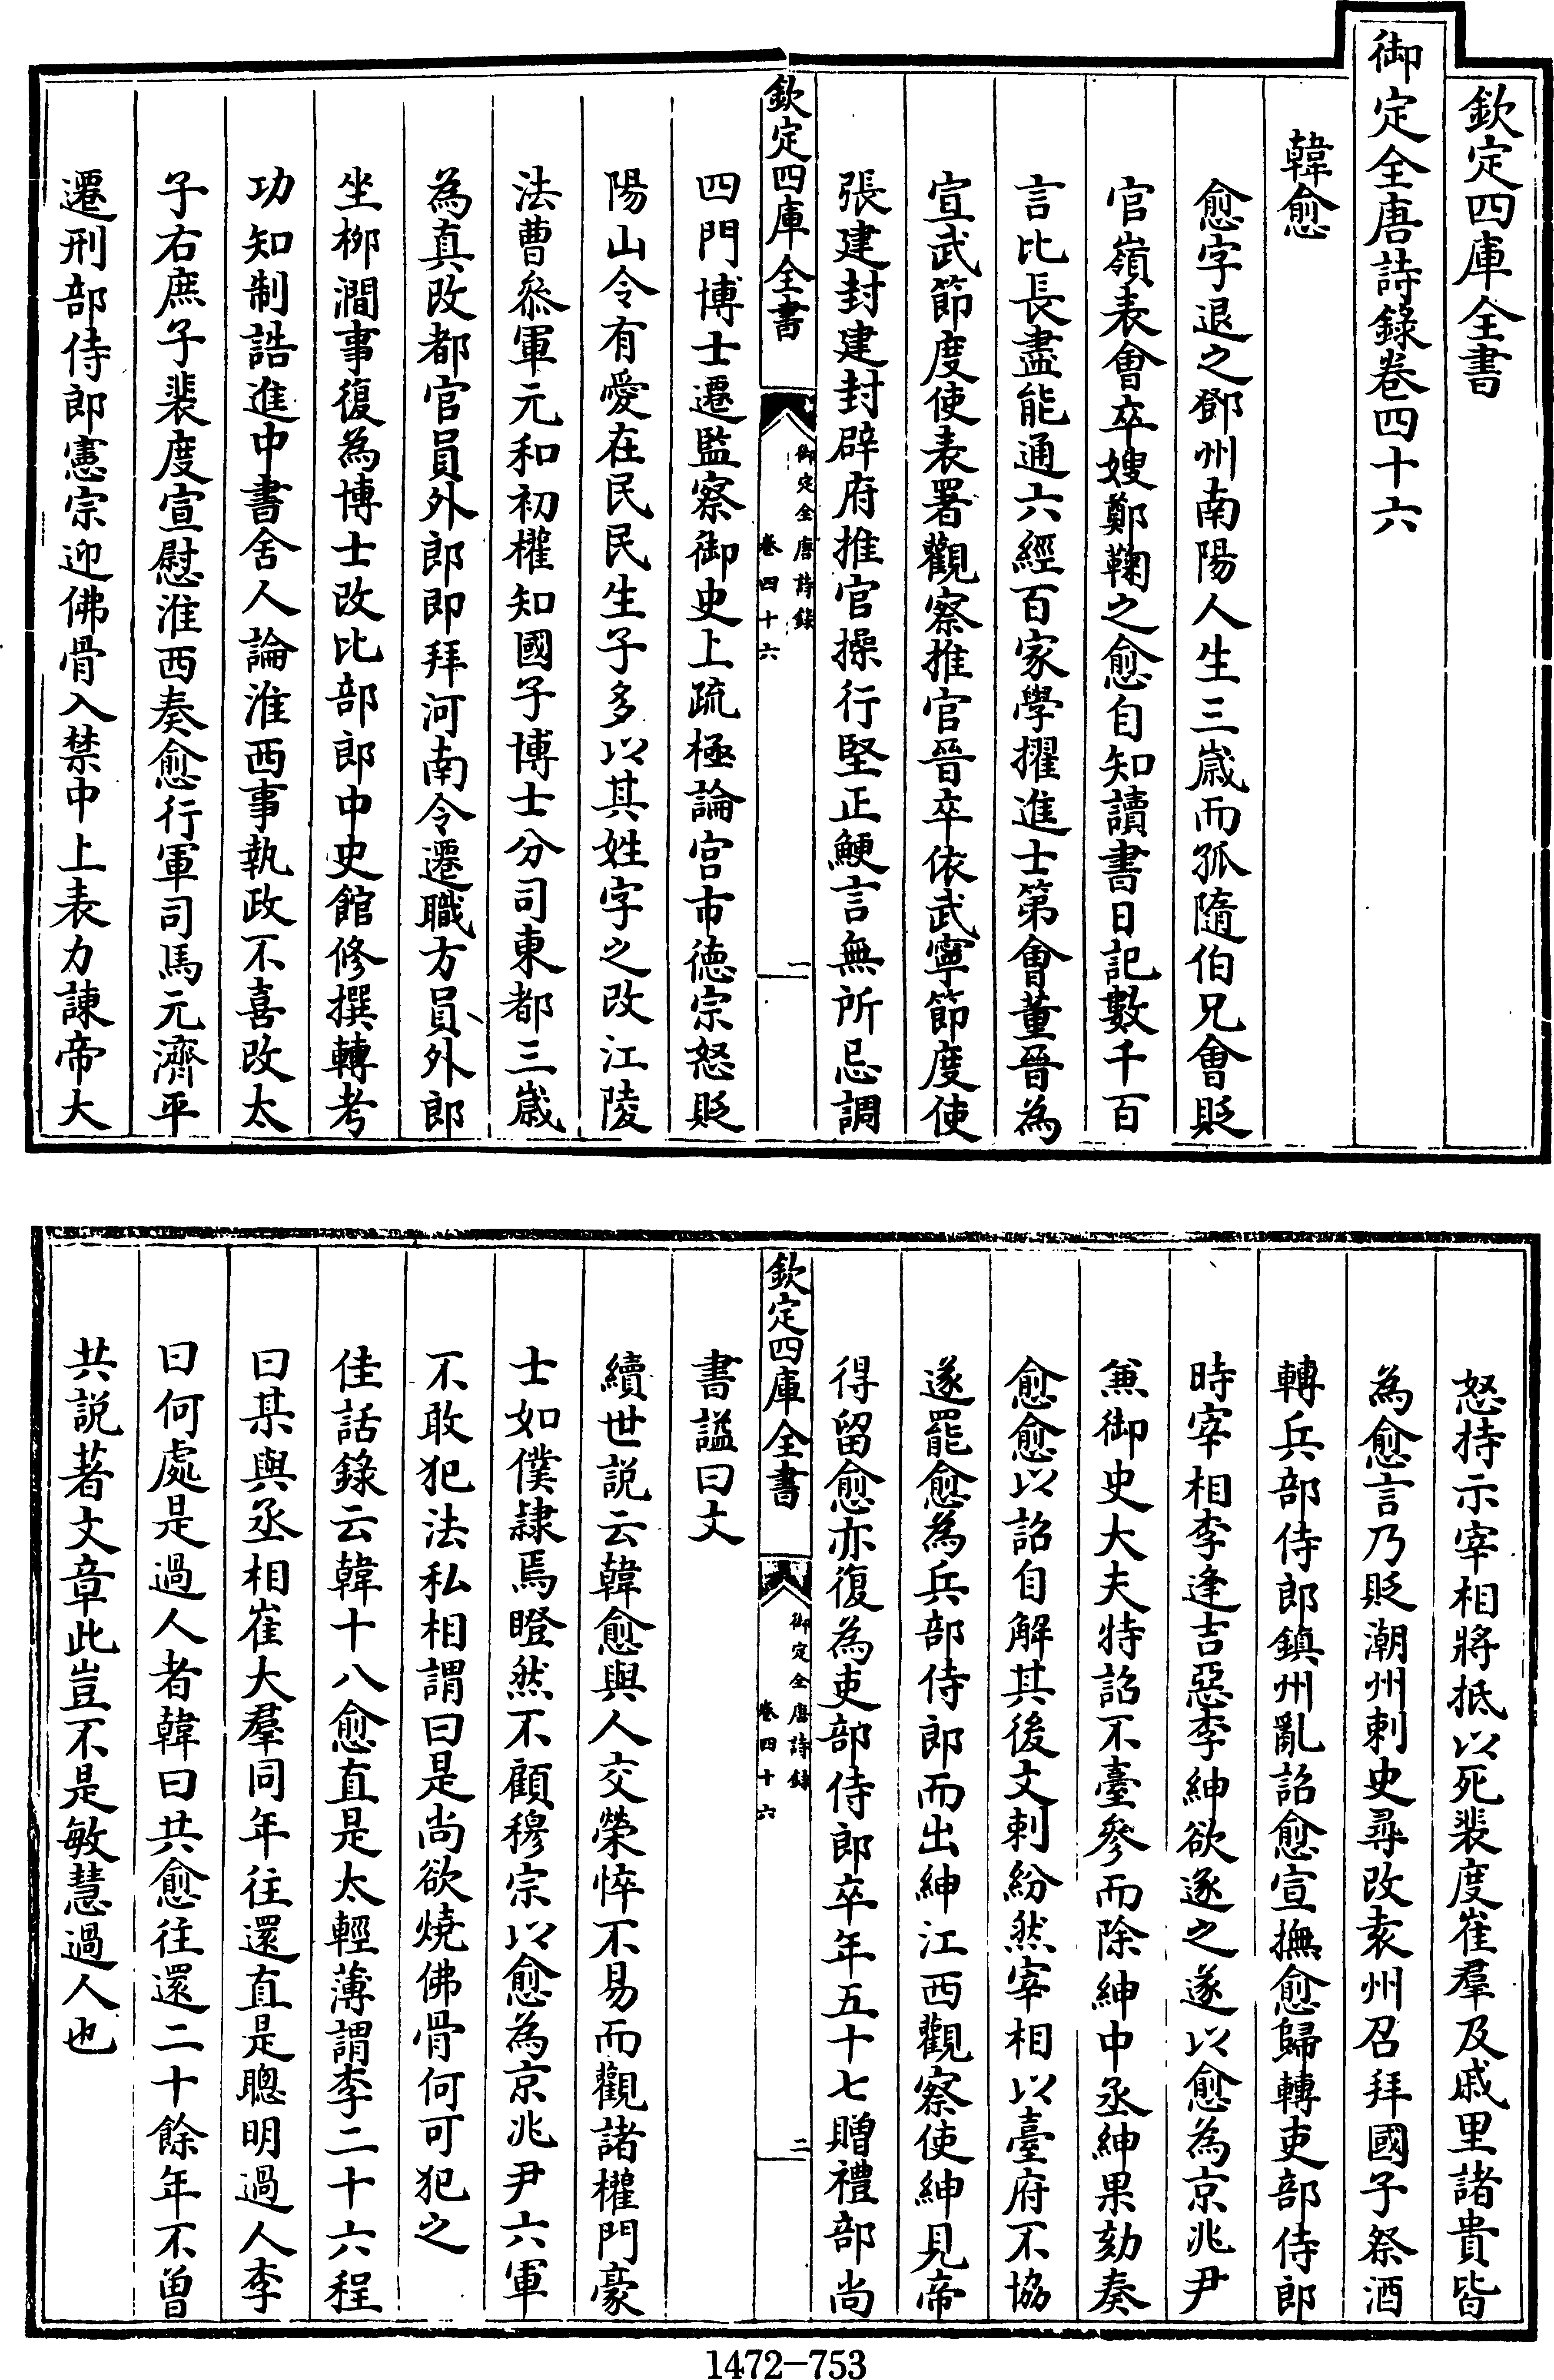 欽定四庫全書
御定全唐詩錄卷四十六
韓愈
愈字退之鄧州南陽人生三歲而孤隨伯兄會貶
官嶺表會卒嫂鄭鞠之愈自知讀書日記數千百
言比長盡能通六經百家學擢進士第會董晉為
宣武節度使表署觀察推官晉卒依武寧節度使
張建封建封辟府推官操行堅正鯁言無所忌調
欽定四庫全書
御定全唐詩錄
卷四十六
一
四門博士遷監察御史上疏極論宮市德宗怒貶
陽山令有愛在民民生子多以其姓字之改江陵
法曹叅軍元和初權知國子博士分司東都三歲
為真改都官員外郎即拜河南令遷職方員外郎
坐柳澗事復為博士改比部郎中史館修撰轉考
功知制誥進中書舍人論淮西事執政不喜改太
子右庶子裴度宣慰淮西奏愈行軍司馬元濟平
遷刑部侍郎憲宗迎佛骨入禁中上表力諫帝大
怒持示宰相將抵以死裴度崔羣及戚里諸貴皆
為愈言乃貶潮州刺史尋改袁州召拜國子祭酒
轉兵部侍郎鎮州亂詔愈宣撫愈歸轉吏部侍郎
時宰相李逢吉惡李紳欲逐之遂以愈為京兆尹
兼御史大夫特詔不臺參而除紳中丞紳果劾奏
愈愈以詔自解其後文刺紛然宰相以臺府不協
遂罷愈為兵部侍郎而出紳江西觀察使紳見帝
得留愈亦復為吏部侍郎卒年五十七贈禮部尚
欽定四庫全書
御定全唐詩錄
卷四十六
二
書諡曰文
續世說云韓愈與人交榮悴不易而觀諸權門豪
士如僕隷焉瞪然不顧穆宗以愈為京兆尹六軍
不敢犯法私相謂曰是尚欲燒佛骨何可犯之
佳話錄云韓十八愈直是太輕薄謂李二十六程
曰某與丞相崔大羣同年往還直是聰明過人李
曰何處是過人者韓曰共愈往還二十餘年不曾
共說著文章此豈不是敏慧過人也
1472—753